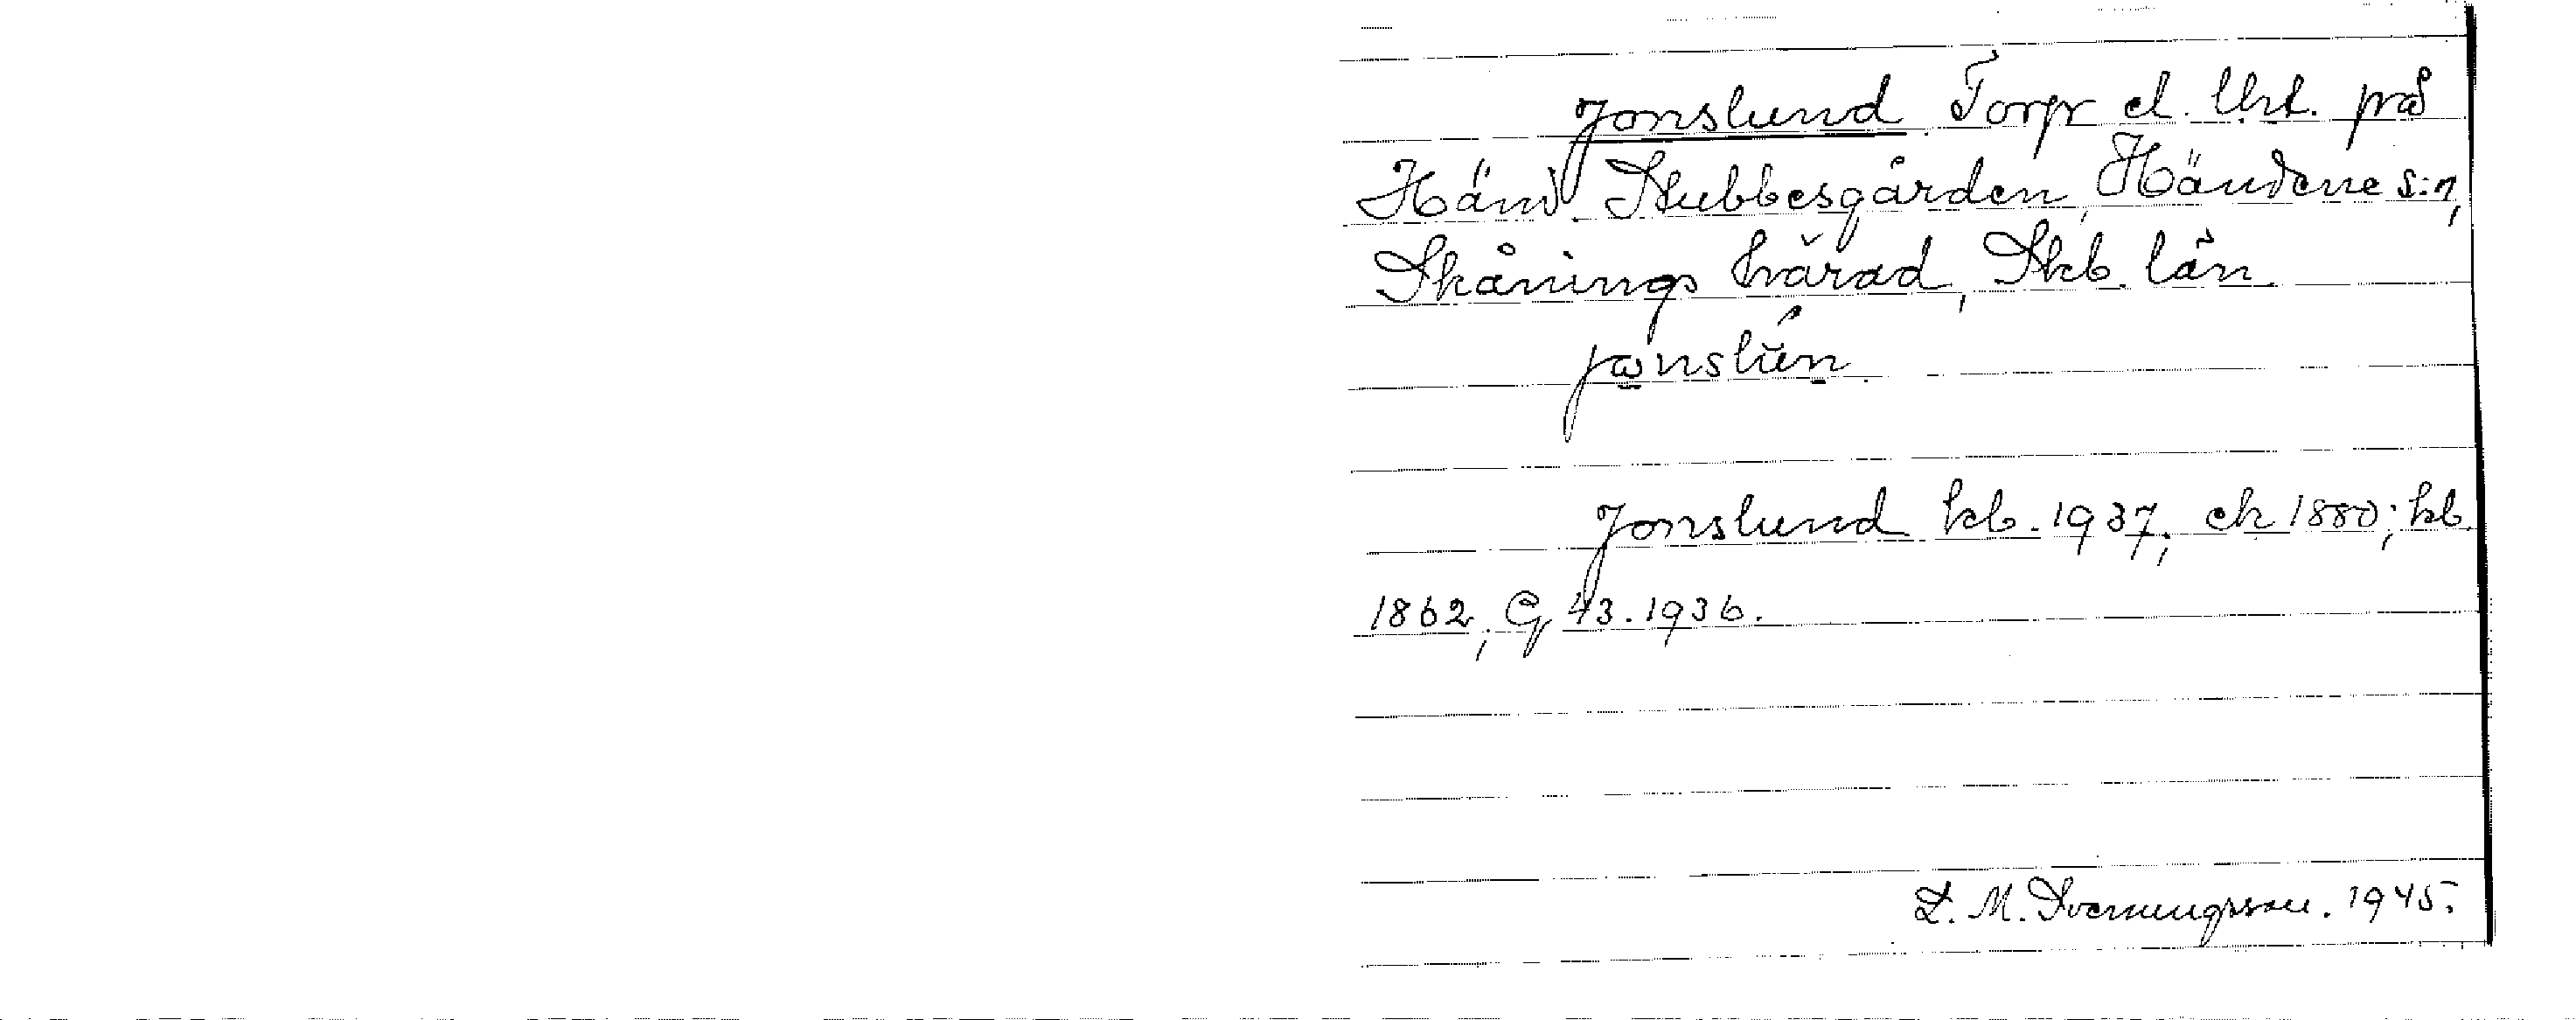 Jonslund Torp el. Uht. på
Händ Stubbesgården, Händene s:n,
Skånings härad, Skb. län.
jonslun
Jonslund kb. 1937; ek 1880; kb.
1862; G 43.1936.
L. M. Svenungsson. 1945.